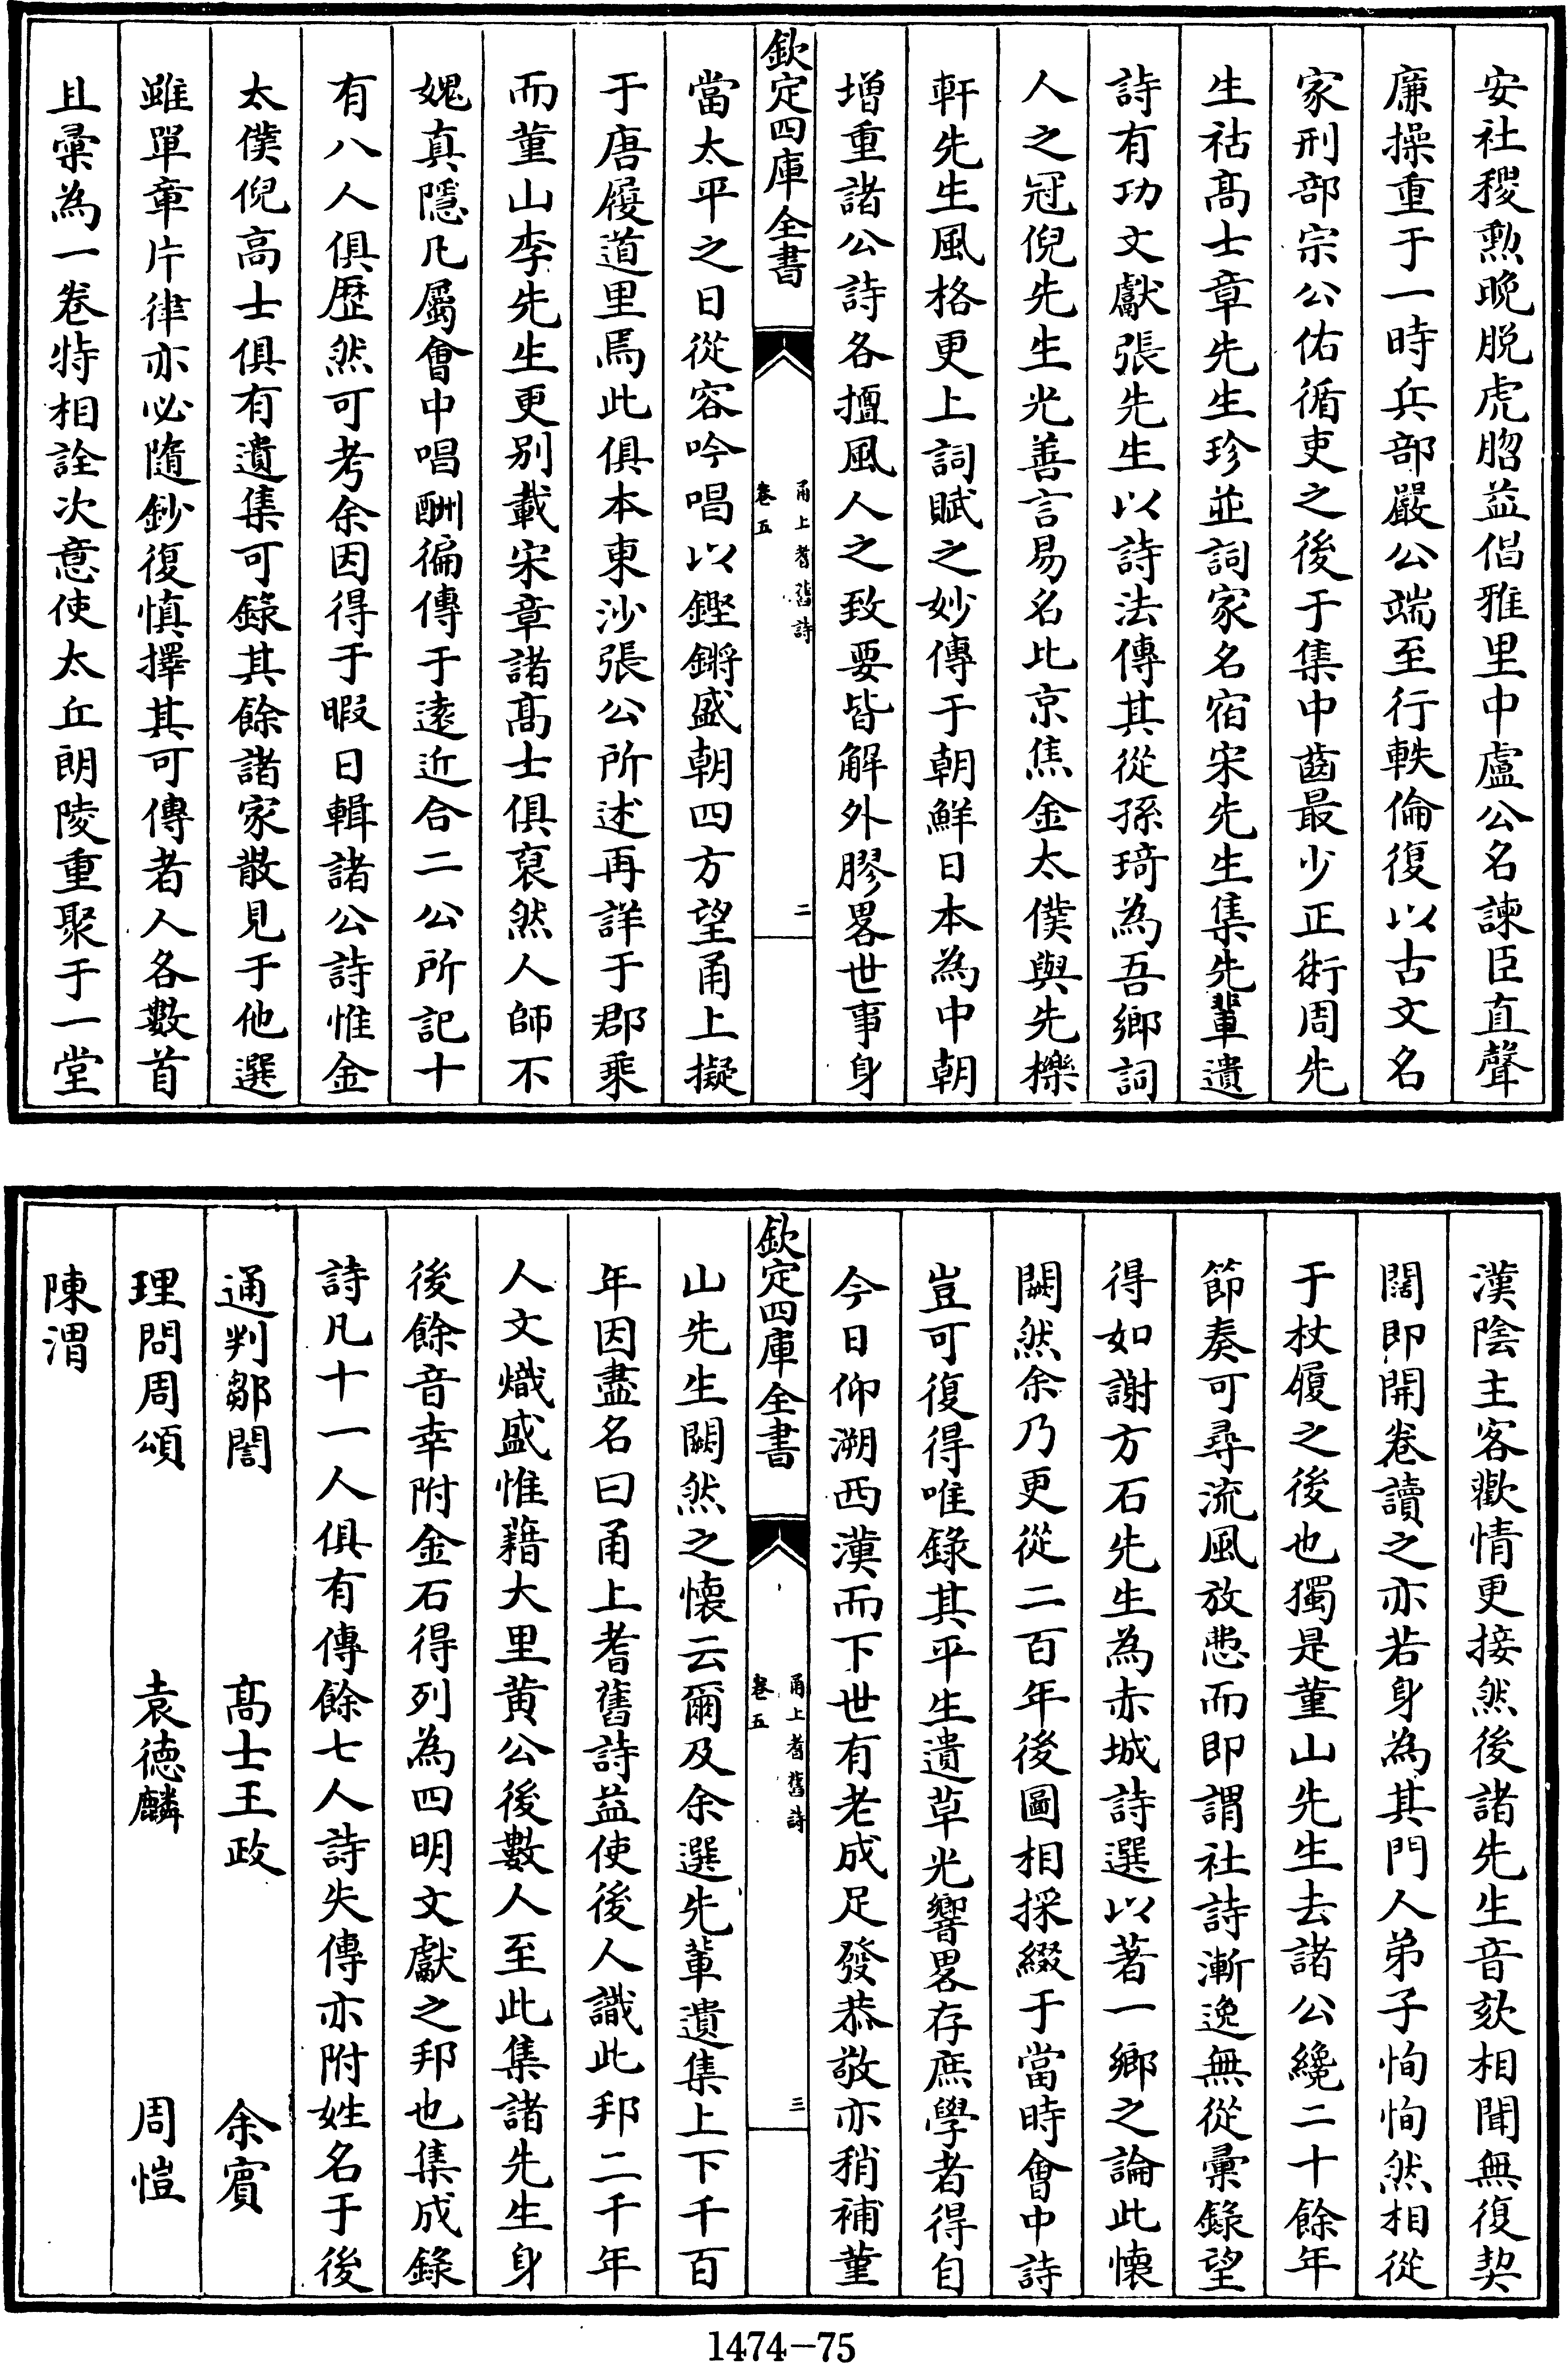 安社稷勲晚脱虎䏶益倡雅里中盧公名諫臣直聲
廉操重于一時兵部嚴公端至行軼倫復以古文名
家刑部宗公佑循吏之後于集中齒最少正術周先
生祜髙士章先生珍並詞家名宿宋先生集先輩遺
詩有功文獻張先生以詩法傳其從孫琦為吾鄉詞
人之冠倪先生光善言易名比京焦金太僕與先櫟
軒先生風格更上詞賦之妙傳于朝鮮日本為中朝
增重諸公詩各擅風人之致要皆解外膠畧世事身
欽定四庫全書
甬上耆舊詩
卷五
二
當太平之日從容吟唱以鏗鏘盛朝四方望甬上擬
于唐履道里焉此俱本東沙張公所述再詳于郡乘
而菫山李先生更别載宋章諸髙士俱裒然人師不
媿真隱凡屬會中唱酬徧傳于遠近合二公所記十
有八人俱歴然可考余因得于暇日輯諸公詩惟金
太僕倪高士俱有遺集可錄其餘諸家散見于他選
雖單章片律亦必隨鈔復慎擇其可傳者人各數首
且彚為一卷特相詮次意使太丘朗陵重聚于一堂
漢陰主客歡情更接然後諸先生音欬相聞無復契
闊即開卷讀之亦若身為其門人弟子恂恂然相從
于杖履之後也獨是菫山先生去諸公纔二十餘年
節奏可尋流風放悲而即謂社詩漸逸無從彚錄望
得如謝方石先生為赤城詩選以著一鄉之論此懷
闕然余乃更從二百年後圖相採綴于當時會中詩
豈可復得唯錄其平生遺草光響畧存庶學者得自
今日仰溯西漢而下世有老成足發恭敬亦稍補菫
欽定四庫全書
甬上耆舊詩
卷五
三
山先生闕然之懷云爾及余選先輩遺集上下千百
年因盡名曰甬上耆舊詩益使後人識此邦二千年
人文熾盛惟藉大里黄公後數人至此集諸先生身
後餘音幸附金石得列為四明文獻之邦也集成錄
詩凡十一人俱有傳餘七人詩失傳亦附姓名于後
通判鄒閭 髙士王政 余賓
理問周頌 袁德麟 周愷
陳渭
1474-75